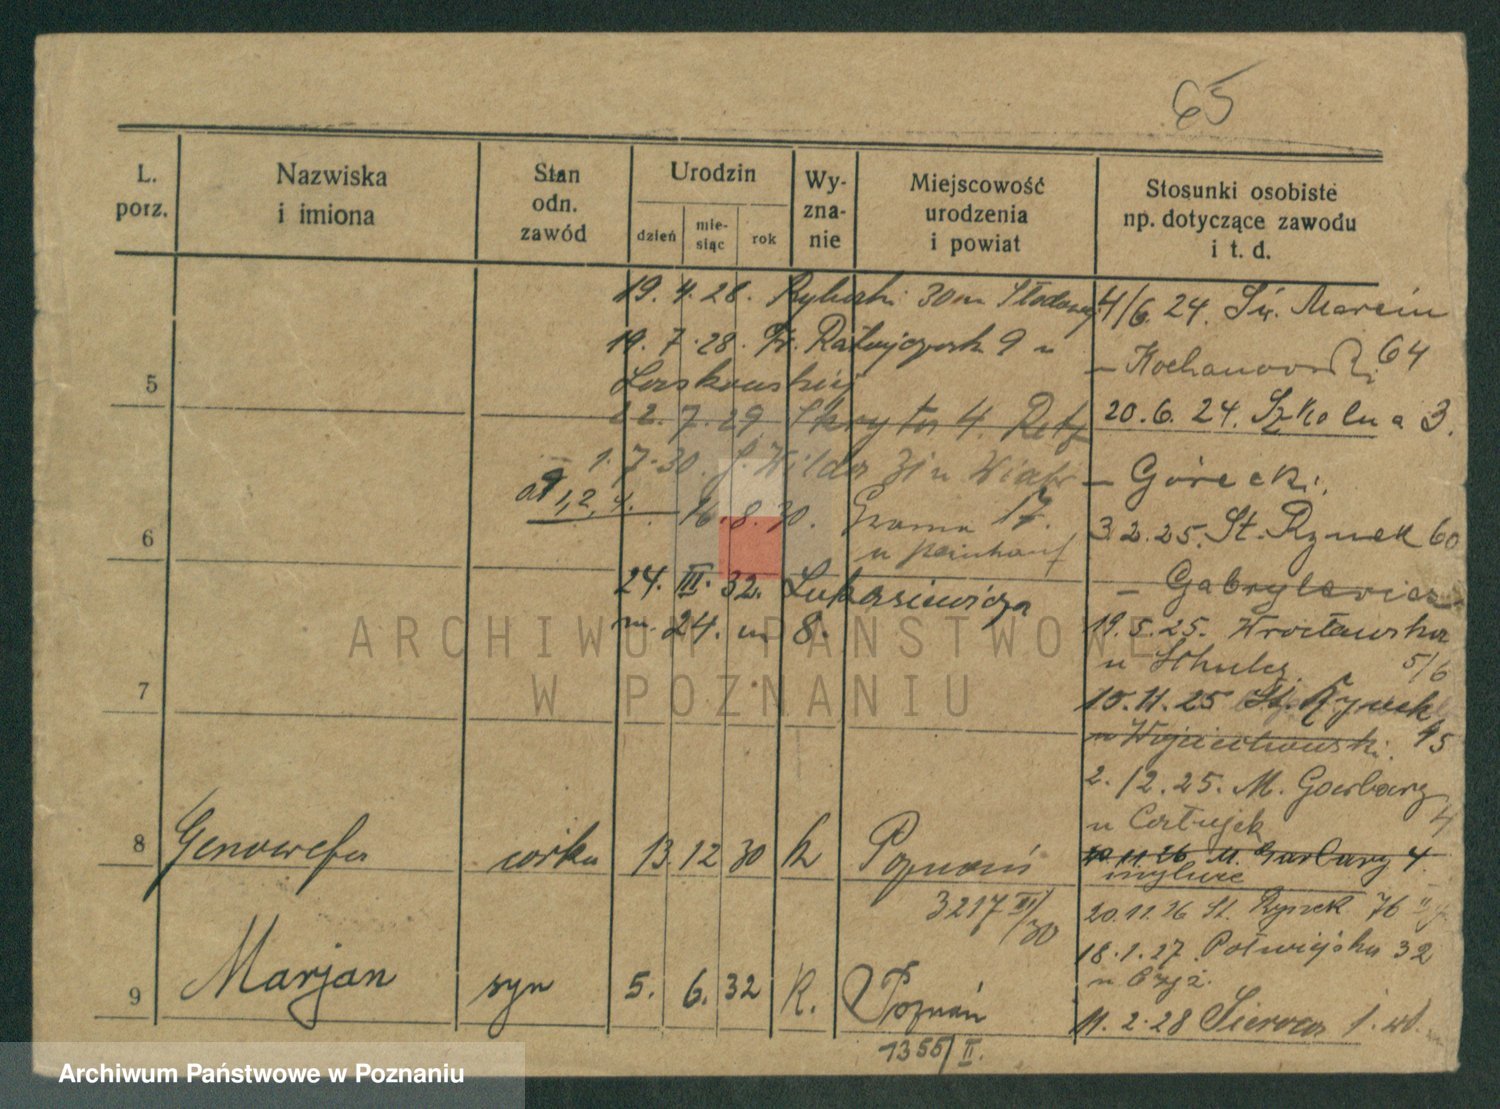 65
L.
porz.
Nazwiska
i imiona
Stan
odn.
zawód
Urodzin
dzień
mie-
siąc
rok
Wy-
zna-
nie
Miejscowość
urodzenia
i powiat
Stosunki osobiste
np. dotyczące zawodu
i t. d.
19. 4. 28. 30 m
19. 7. 28. Fr. Ratajczaka 9 u
Laskowskiej
5
22. 7. 29 4.
1. 7. 30. Wilda 31 u
od 1, 2, 4. 16. 8. 30. 17.
u
6
24. III. 32. Łukasiewicza
nr. 24. m 8.
7
8 Genowefa córka 13 12 30 k Poznań
3217 III/30
9 Marjan syn 5. 6. 32 k. Poznań
1355/II.
4/6. 24. Św. Marcin
64
– Kochanowski
20. 6. 24. Szkolna 3.
– Górecki.
3. 2. 25. St. Rynek 60
– Gabrylewicz
19. 5. 25. Wrocławska
u 5/6
10. 11. 25 St. Rynek
u Wojciechowski. 45
2. 12. 25. M. Garbary
u 4
20 11 26 M. Garbary 4.
mylnie
20. 11. 26 St. Rynek 76
18. 1. 27. Półwiejska 32
u
11. 2. 28
ARCHIWUM PAŃSTWOWE
W POZNANIU
Archiwum Państwowe w Poznaniu